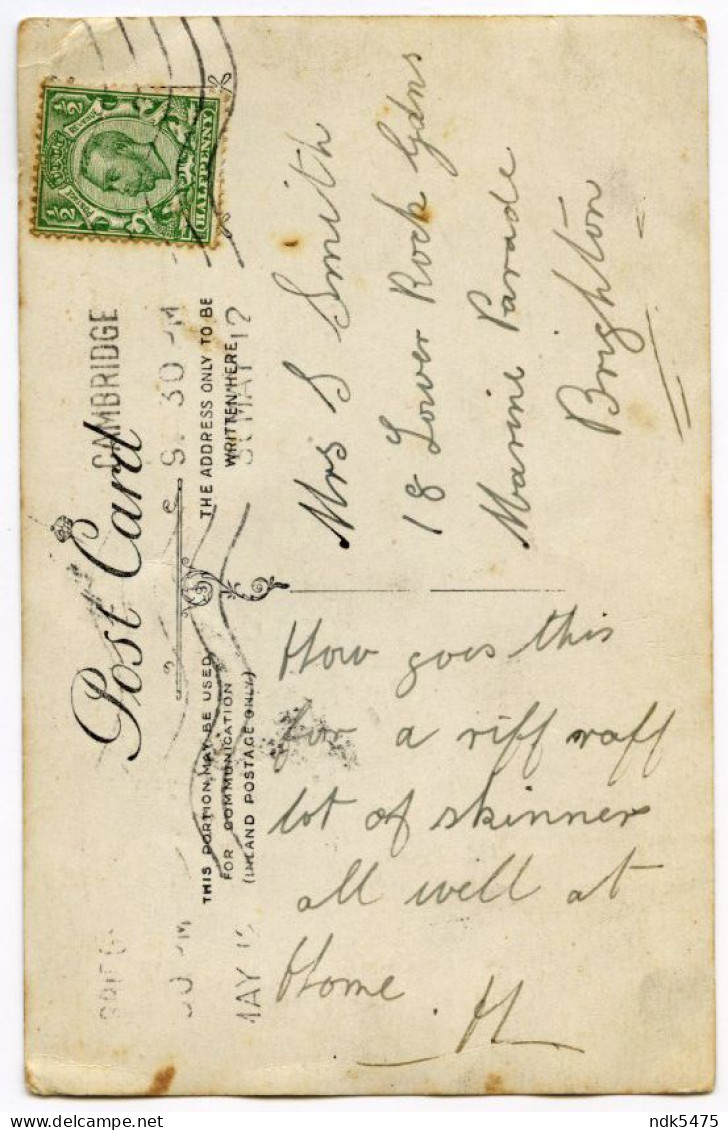 Post Card
THIS PORTION MAY BE USED
FOR COMMUNICATION
(INLAND POSTAGE ONLY)
THE ADDRESS ONLY TO BE
WRITTEN HERE
CAMBRIDGE
30 PM
MAY 12
POSTAGE
REVENUE
½
½
HALFPENNY
How goes this
for a riff raff
lot of skinner
all well at
Home
H
Mrs S Smith
18 Lower Rock Gdns
Marine Parade
Brighton
30 PM
MAY 12
ndk5475